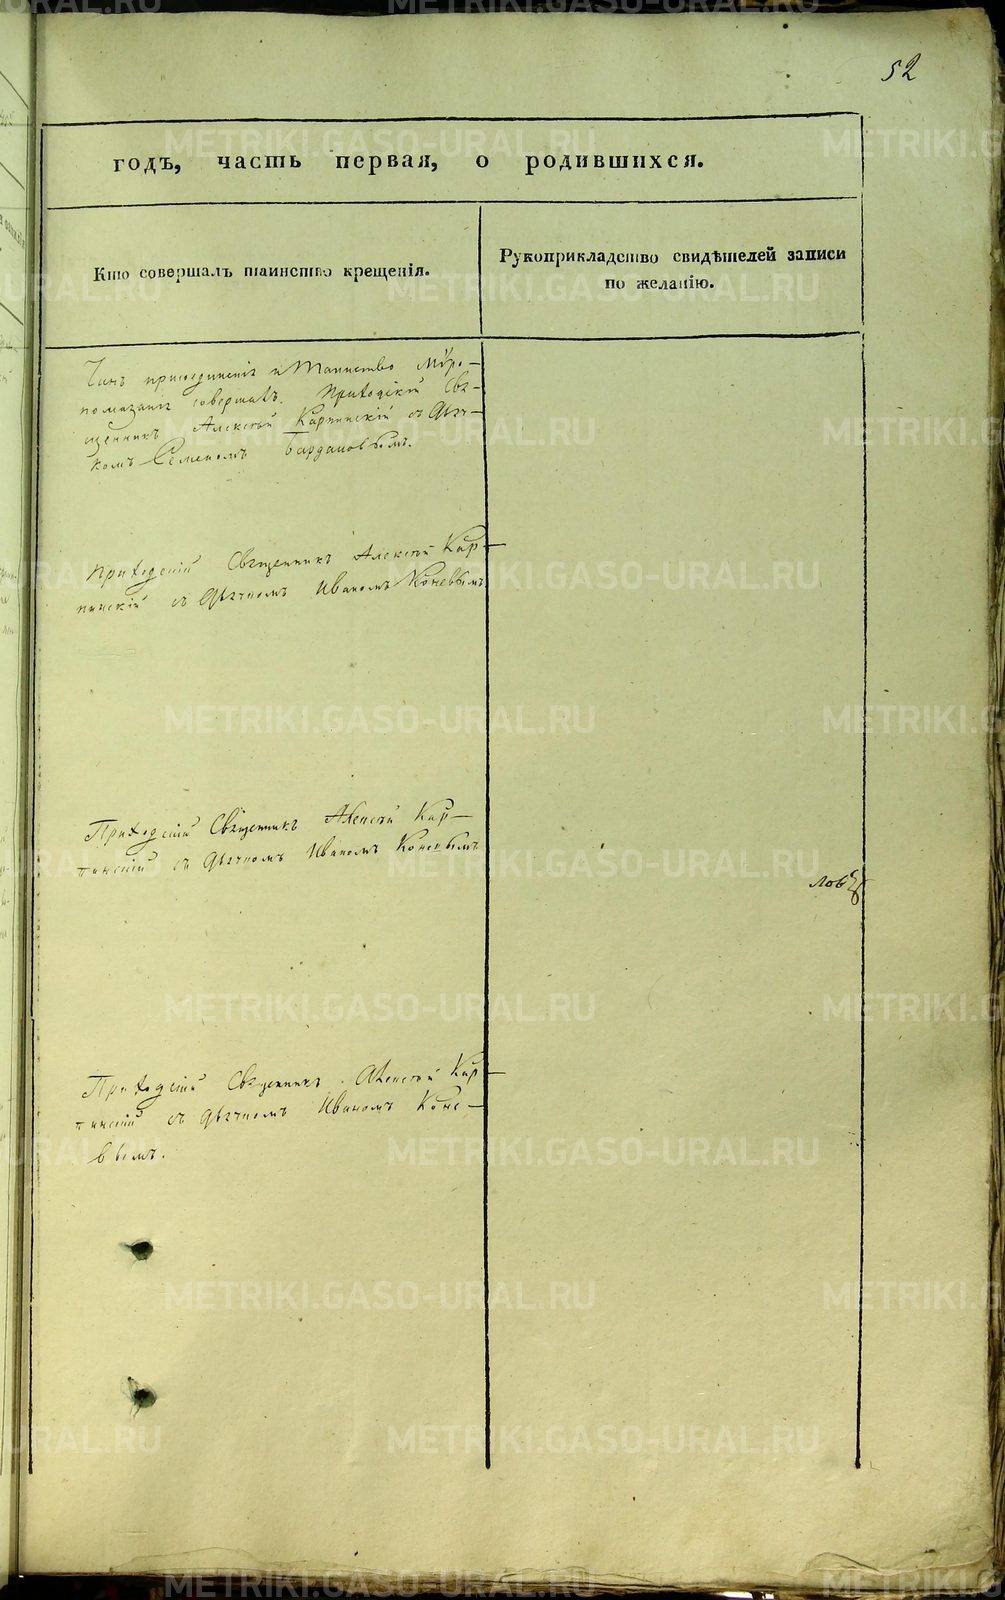 52
годъ, часть первая, о родившихся.
Кто совершалъ таинство крещенія.
Рукоприкладство свидѣтелей записи
по желанію.
Чинъ присоединенія и Таинство Мѵро-
помазанія совершалъ. Приходскій Свя-
щенникъ Алексѣй Карпинскій съ Дьяч-
комъ Семеномъ
Приходскій Священникъ Алексѣй Кар-
пинскій съ Дьячкомъ Иваномъ Коневымъ
Приходскій Священникъ Алексѣй Кар-
пинскій съ Дьячкомъ Иваномъ Коневымъ
лов
Приходскій Священникъ Алексѣй Кар-
пинскій съ Дьячкомъ Иваномъ Коне-
вымъ.
METRIKI.GASO-URAL.RU